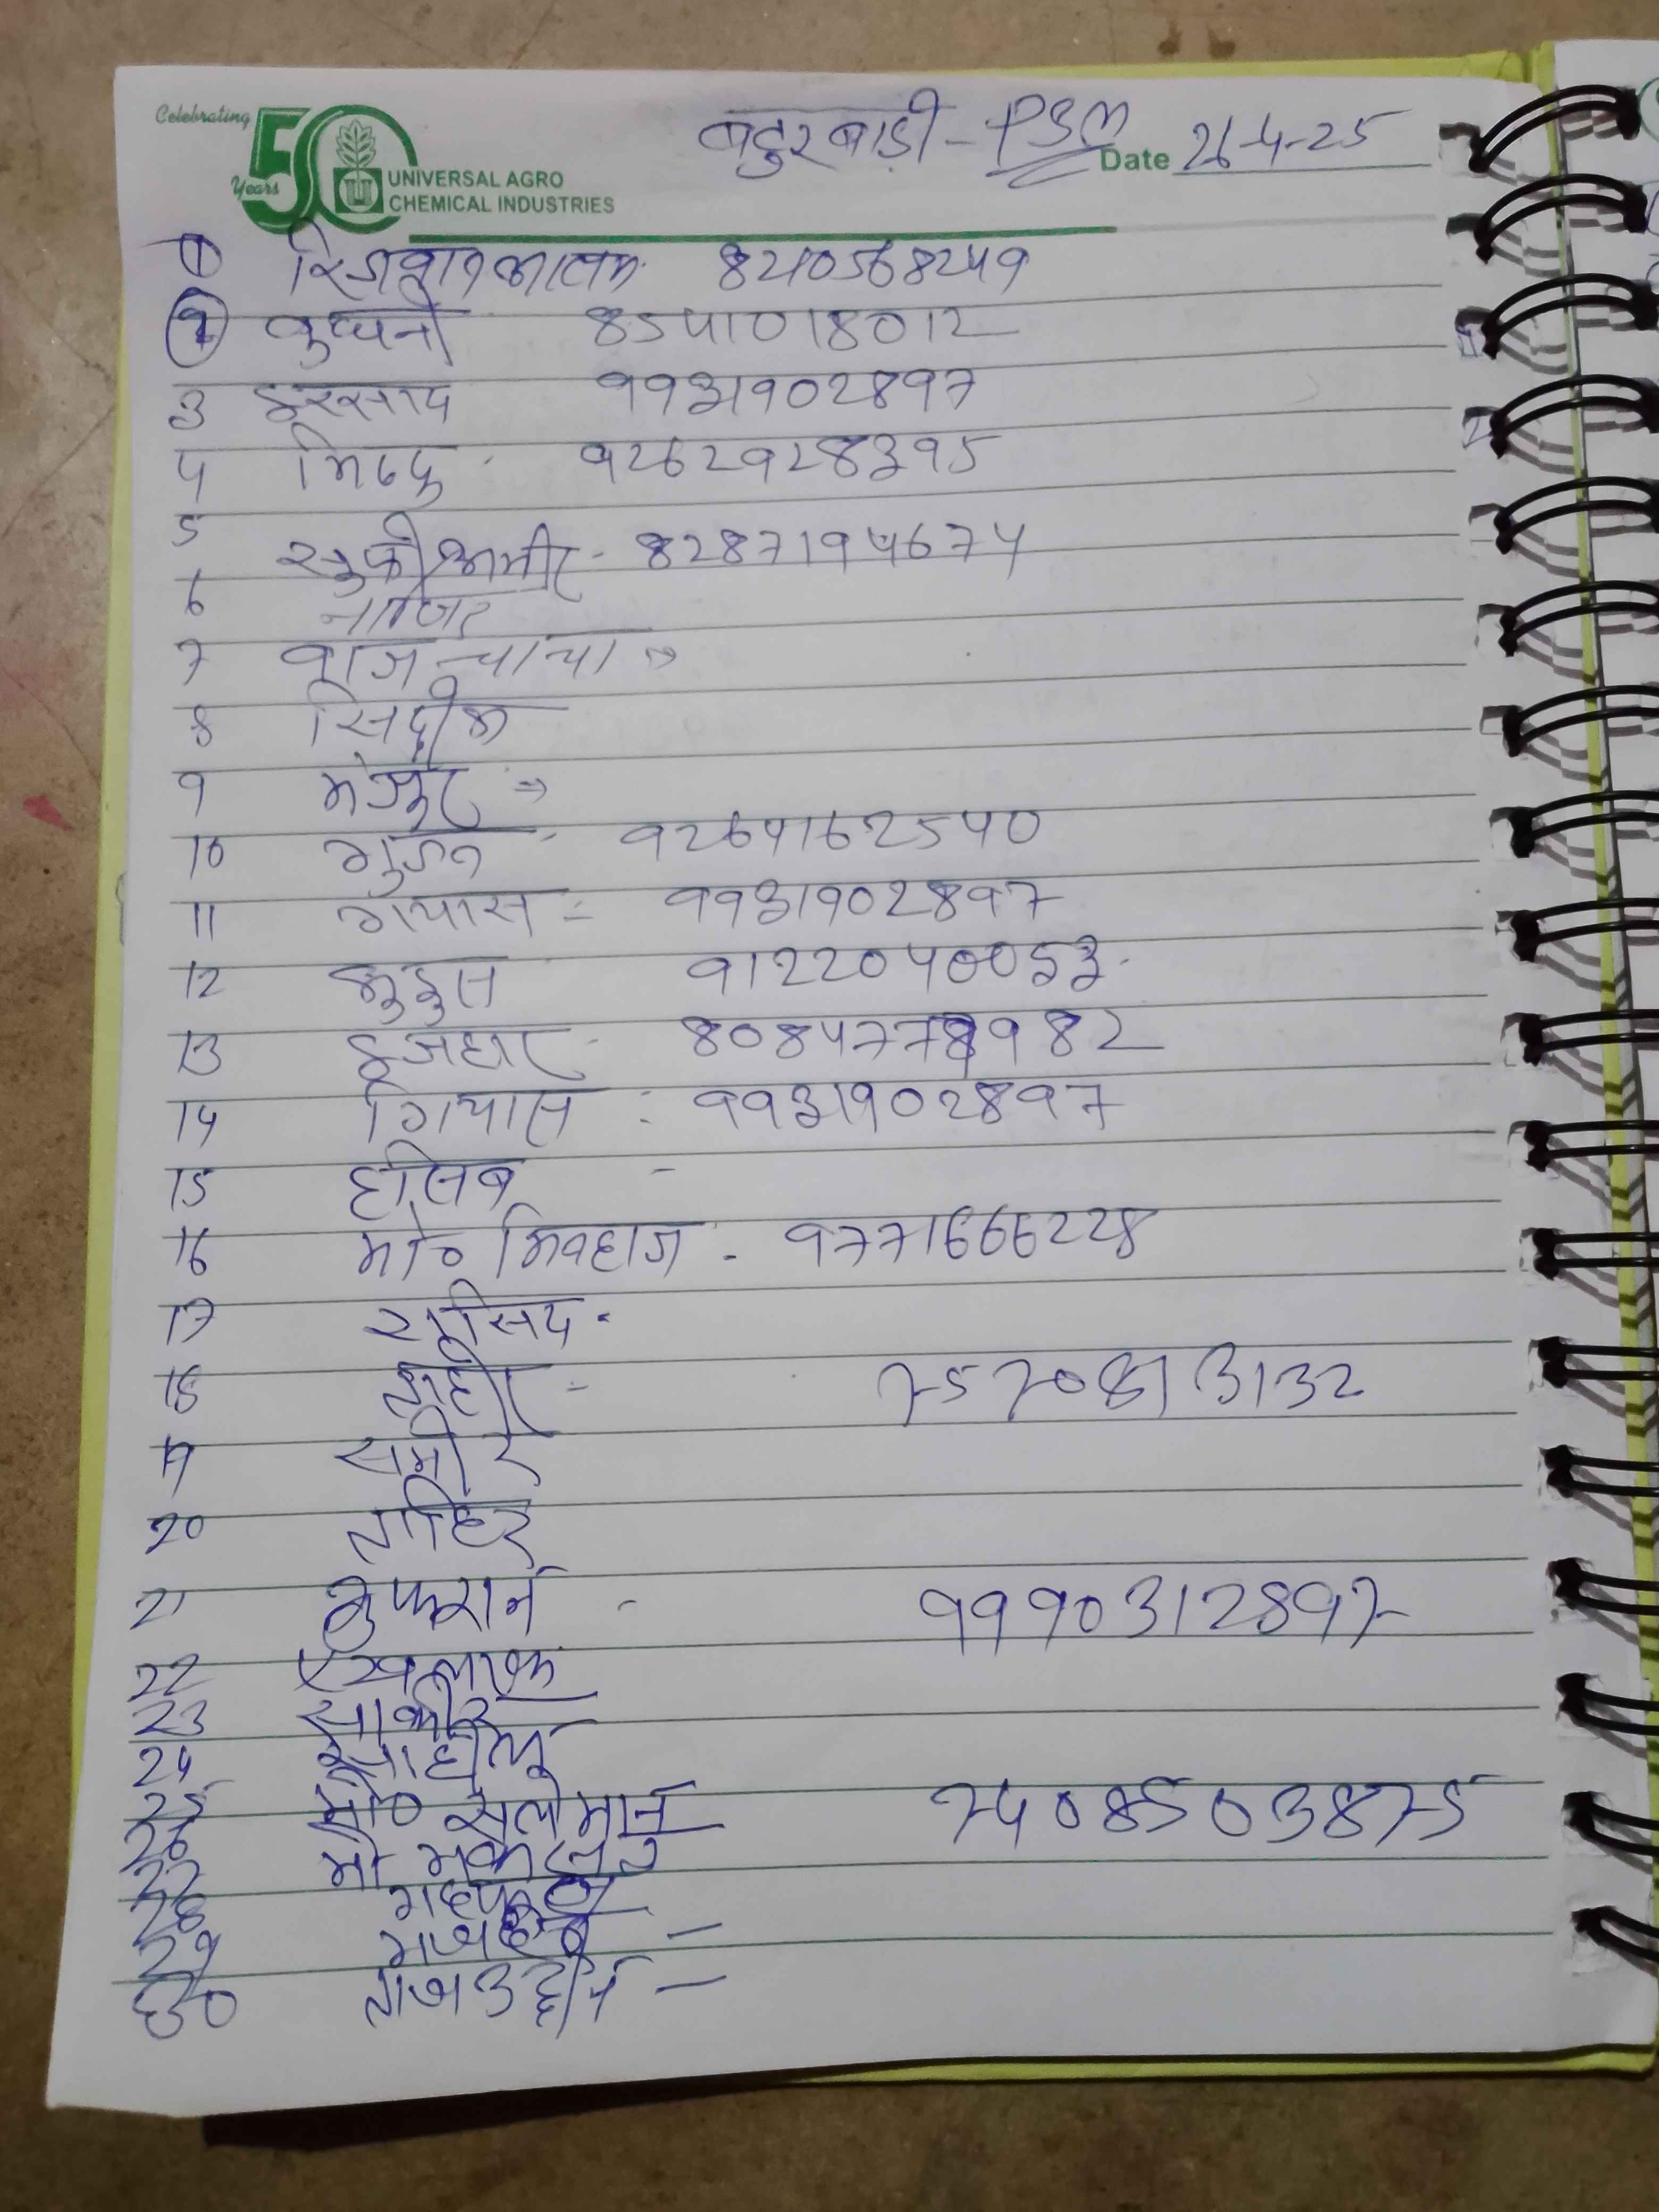 Celebrating
50 Years
UNIVERSAL AGRO
CHEMICAL INDUSTRIES
बदुरबाड़ी - PSM
Date 26-4-25
1 रिजवान आलम 8240568249
2 बुधनी 8541018012
3 इरसाद 9931902897
4 मिठु - 9262928395
5 सुफी अमीर - 8287194674
6 नाजिर
7 राज चाचा ⇒
8 सिद्दीक
9 मंजूर ⇒
10 गुडन - 9264162540
11 गयास = 9931902897
12 कुदुस 9122040053
13 इजहार - 8084778982
14 गियास : 9931902897
15 हसिब -
16 मो० मिनहाज - 9771666228
17 सुसिद -
18 जहीर - 7570873132
19 समीर
20 ताहिर
21 गुफरान - 9990312897
22 एखलाक
23 साकीर
24 साहील
25 मो० सलेमान 7408503875
26 मो
27
28
29
30 ताजउद्दीन -